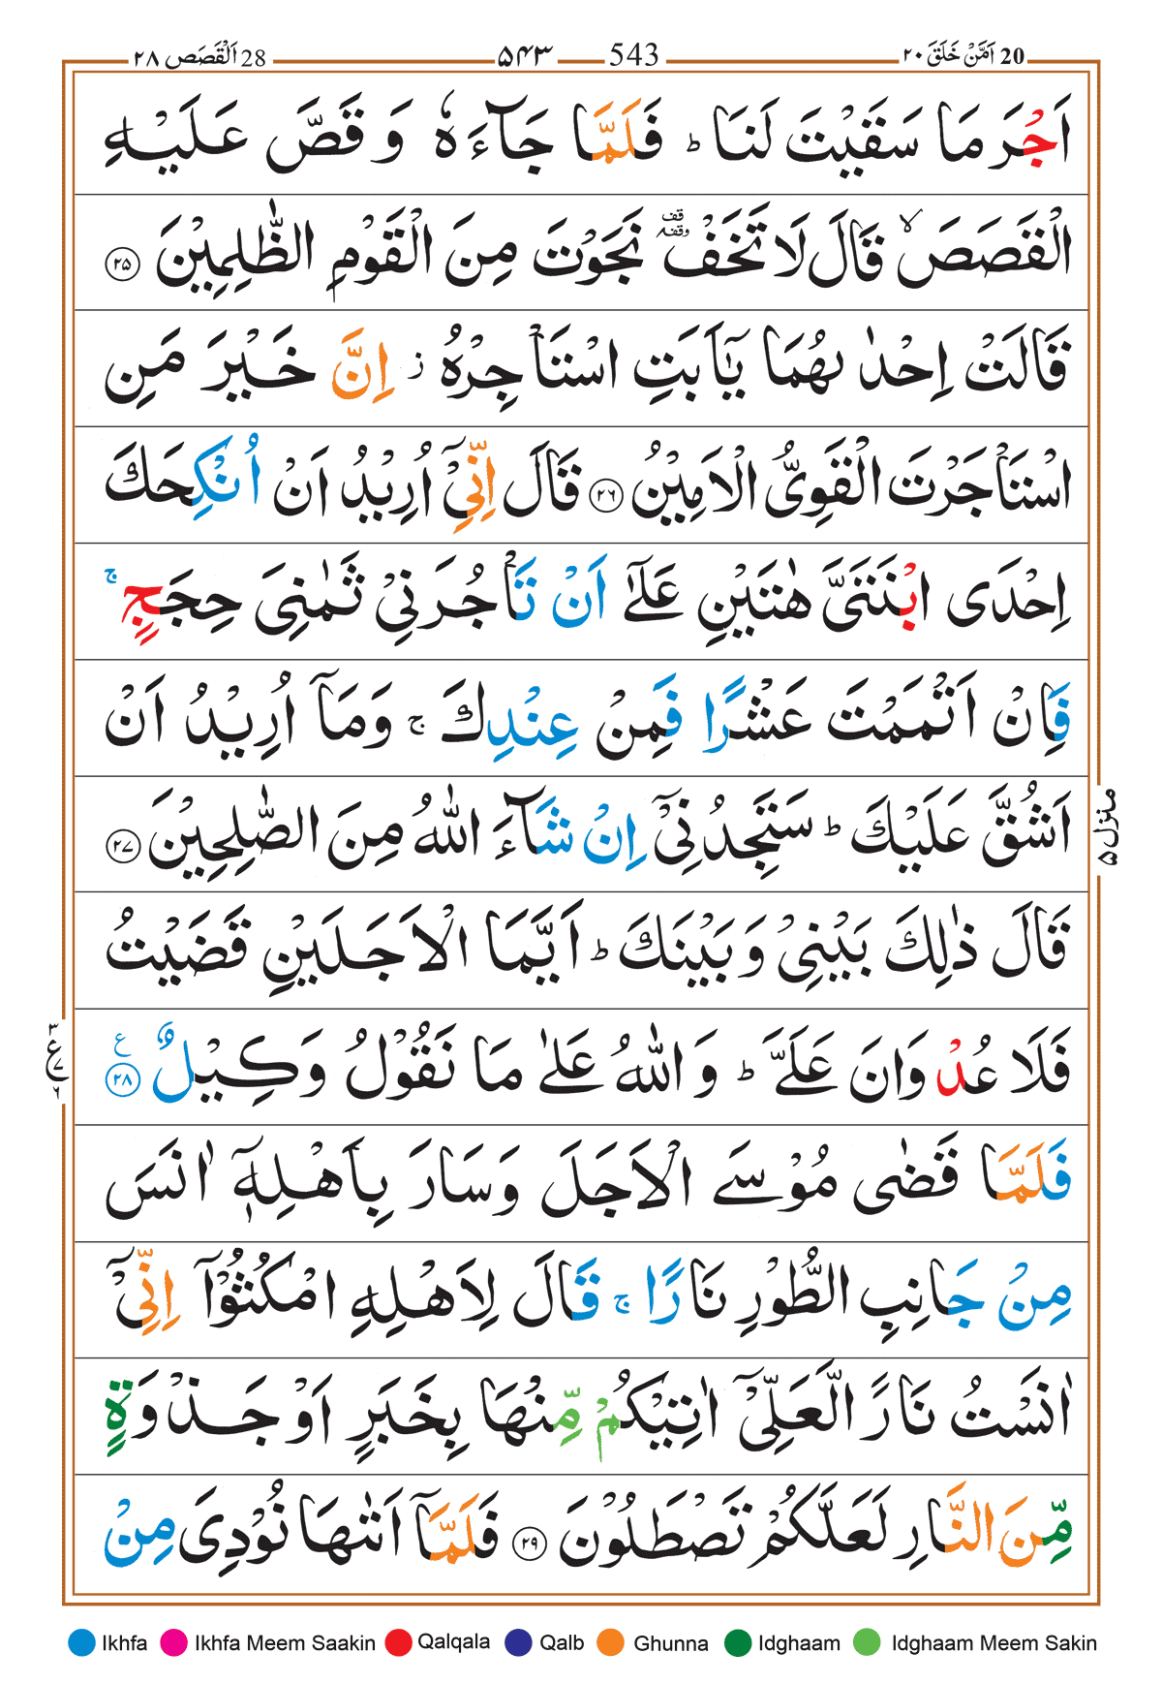 20 اَمَّنْ خَلَقَ ٢٠ 543 ۵۴۳ 28 اَلْقَصَص ٢٨
اَجْرَ مَا سَقَيْتَ لَنَا ؕ فَلَمَّا جَآءَهٗ وَ قَصَّ عَلَيْهِ
الْقَصَصَ ۙ قَالَ لَا تَخَفْ ۥقف وقفۃ نَجَوْتَ مِنَ الْقَوْمِ الظّٰلِمِيْنَ ﴿۲۵﴾
قَالَتْ اِحْدٰىهُمَا يٰۤاَبَتِ اسْتَاْجِرْهُ ؗ اِنَّ خَيْرَ مَنِ
اسْتَاْجَرْتَ الْقَوِيُّ الْاَمِيْنُ ﴿۲۶﴾ قَالَ اِنِّيْۤ اُرِيْدُ اَنْ اُنْكِحَكَ
اِحْدَى ابْنَتَيَّ هٰتَيْنِ عَلٰۤى اَنْ تَاْجُرَنِيْ ثَمٰنِيَ حِجَجٍ ۚ
فَاِنْ اَتْمَمْتَ عَشْرًا فَمِنْ عِنْدِكَ ۚ وَمَاۤ اُرِيْدُ اَنْ
اَشُقَّ عَلَيْكَ ؕ سَتَجِدُنِيْۤ اِنْ شَآءَ اللّٰهُ مِنَ الصّٰلِحِيْنَ ﴿۲۷﴾
قَالَ ذٰلِكَ بَيْنِيْ وَبَيْنَكَ ؕ اَيَّمَا الْاَجَلَيْنِ قَضَيْتُ
فَلَا عُدْوَانَ عَلَيَّ ؕ وَاللّٰهُ عَلٰى مَا نَقُوْلُ وَكِيْلٌ ﴿۲۸﴾ ع
فَلَمَّا قَضٰى مُوْسَى الْاَجَلَ وَسَارَ بِاَهْلِهٖۤ اٰنَسَ
مِنْ جَانِبِ الطُّوْرِ نَارًا ۚ قَالَ لِاَهْلِهِ امْكُثُوْۤا اِنِّيْۤ
اٰنَسْتُ نَارًا لَّعَلِّيْۤ اٰتِيْكُمْ مِّنْهَا بِخَبَرٍ اَوْ جَذْوَةٍ
مِّنَ النَّارِ لَعَلَّكُمْ تَصْطَلُوْنَ ﴿۲۹﴾ فَلَمَّاۤ اَتٰىهَا نُوْدِيَ مِنْ
منزل ۵
۳
ع ۷
۶
Ikhfa Ikhfa Meem Saakin Qalqala Qalb Ghunna Idghaam Idghaam Meem Sakin